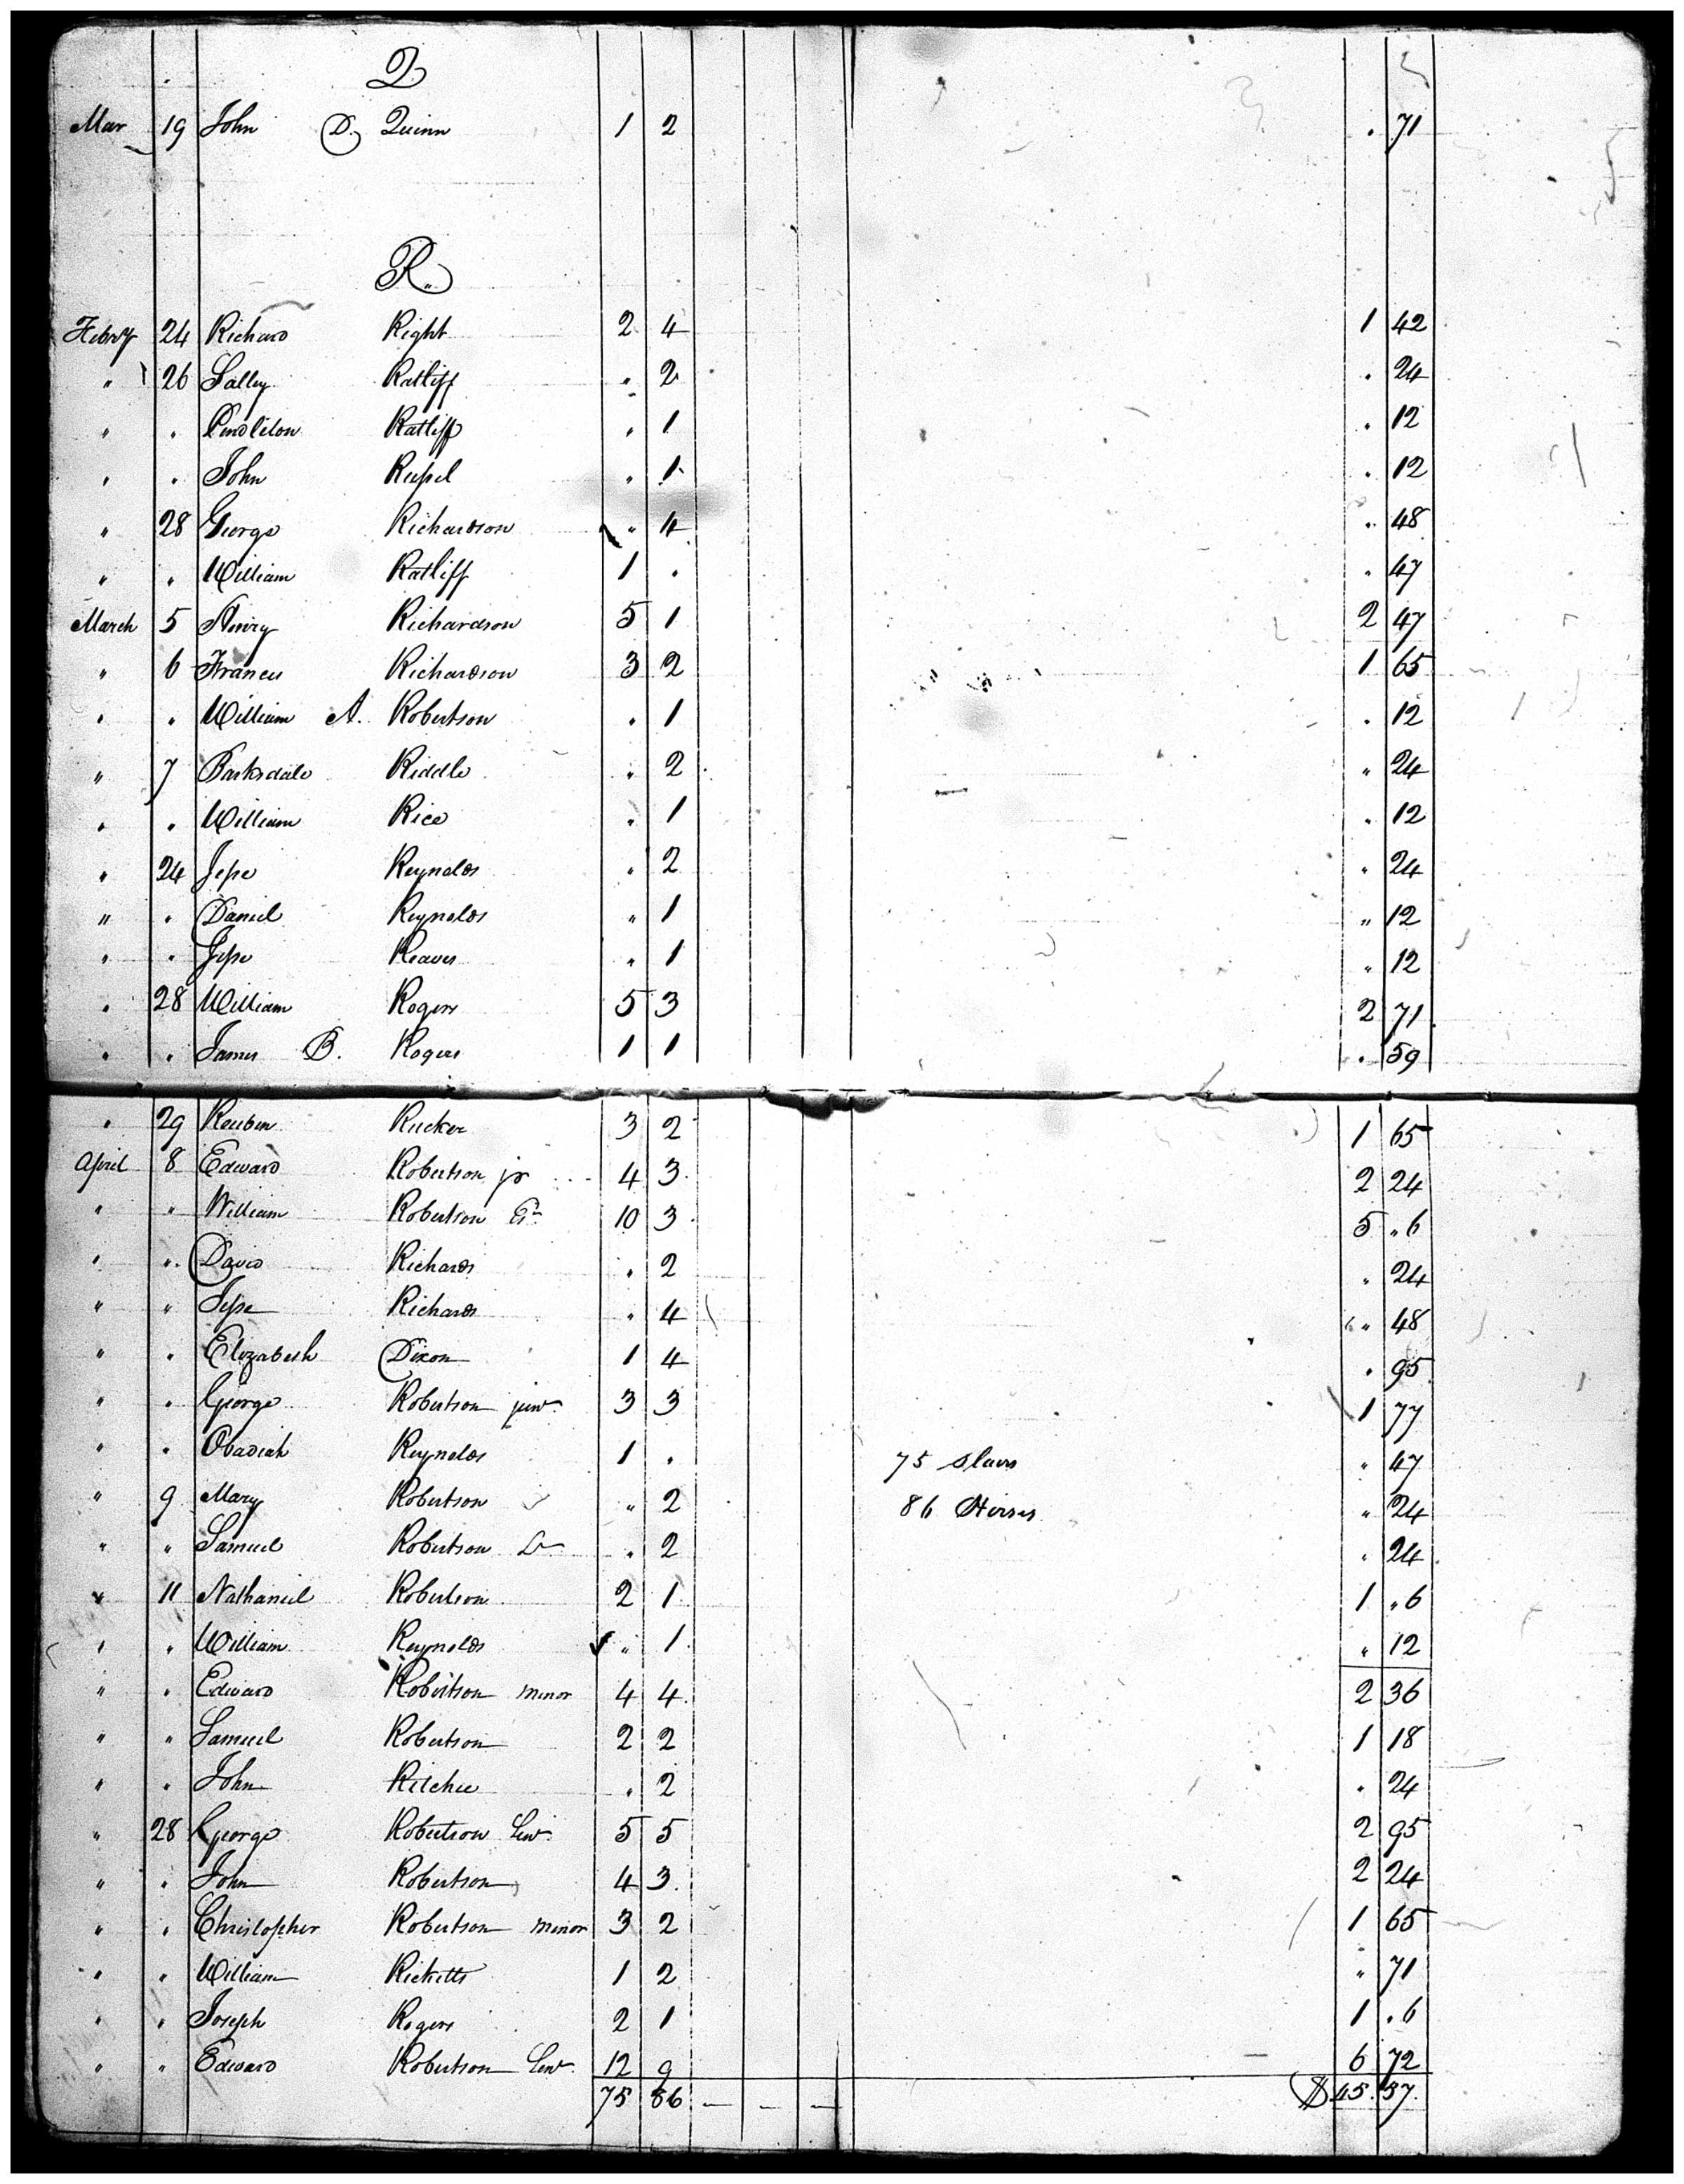 Q
Mar 19 John D. Quinn 1 2 . 71
R
Febry 24 Richard Right 2 4 1 42
" 26 Salley Ratliff " 2 . 24
" " Pendleton Ratliff " 1 . 12
" " John Russel " 1 . 12
" 28 George Richardson " 4 " 48
" " William Ratliff 1 . " 47
March 5 Henry Richardson 5 1 2 47
" 6 Frances Richardson 3 2 1 65
" " William A. Robertson . 1 . 12
" 7 Barksdale Riddle " 2 " 24
" " William Rice " 1 . 12
" 24 Jesse Reynolds " 2 " 24
" " Daniel Reynolds " 1 " 12
" " Jesse Reaves " 1 " 12
" 28 William Rogers 5 3 2 71
" " James B. Rogers 1 1 . 59
" 29 Reuben Rucker 3 2 1 65
April 8 Edward Robertson jr 4 3 2 24
" " William Robertson Est 10 3 5 " 6
" " David Richards . 2 " 24
" " Jesse Richards " 4 " 48
" " Elizabeth Dixon 1 4 . 95
" " George Robertson junr 3 3 1 77
" " Obadiah Reynolds 1 . 75 Slaves " 47
" 9 Mary Robertson " 2 86 Horses " 24
" " Samuel Robertson Sr " 2 " 24
" 11 Nathaniel Robertson 2 1 1 " 6
" " William Reynolds " 1 " 12
" " Edward Robertson minor 4 4 2 36
" " Samuel Robertson 2 2 1 18
" " John Ritchie " 2 " 24
" 28 George Robertson Senr 5 5 2 95
" " John Robertson 4 3 2 24
" " Christopher Robertson minor 3 2 1 65
" " William Ricketts 1 2 " 71
" " Joseph Rogers 2 1 1 " 6
" " Edward Robertson Senr 12 9 6 72
75 86 — — — $ 45.57